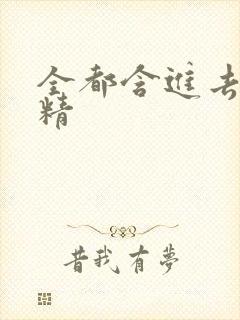 全都含進去
精
昔我有夢